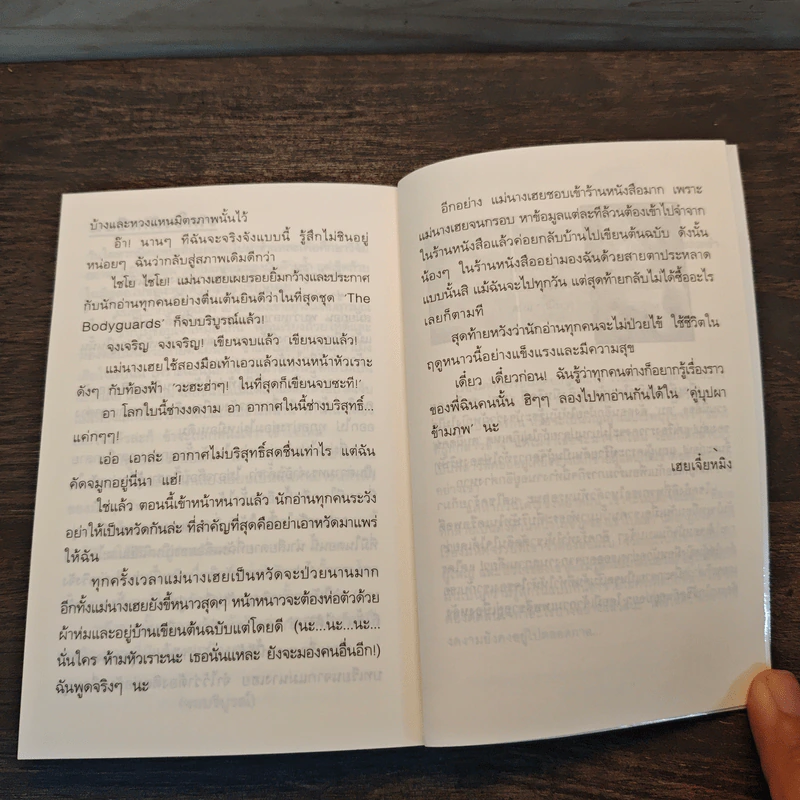 บ้างและหวงแหนมิตรภาพนั้นไว้
อ๊า! นานๆ ทีฉันจะจริงจังแบบนี้ รู้สึกไม่ชินอยู่
หน่อยๆ ฉันว่ากลับสู่สภาพเดิมดีกว่า
ไชโย ไชโย! แม่นางเฮยเผยรอยยิ้มกว้างและประกาศ
กับนักอ่านทุกคนอย่างตื่นเต้นยินดีว่าในที่สุดชุด 'The
Bodyguards' ก็จบบริบูรณ์แล้ว!
จงเจริญ จงเจริญ! เขียนจบแล้ว เขียนจบแล้ว!
แม่นางเฮยใช้สองมือเท้าเอวแล้วแหงนหน้าหัวเราะ
ดังๆ กับท้องฟ้า 'วะฮะฮ่าๆ! ในที่สุดก็เขียนจบซะที!'
อา โลกใบนี้ช่างงดงาม อา อากาศในนี้ช่างบริสุทธิ์...
แค่กๆๆ!
เอ่อ เอาล่ะ อากาศไม่บริสุทธิ์สดชื่นเท่าไร แต่ฉัน
คัดจมูกอยู่นี่นา แฮ่!
ใช่แล้ว ตอนนี้เข้าหน้าหนาวแล้ว นักอ่านทุกคนระวัง
อย่าให้เป็นหวัดกันล่ะ ที่สำคัญที่สุดคืออย่าเอาหวัดมาแพร่
ให้ฉัน
ทุกครั้งเวลาแม่นางเฮยเป็นหวัดจะป่วยนานมาก
อีกทั้งแม่นางเฮยยังขี้หนาวสุดๆ หน้าหนาวจะต้องห่อตัวด้วย
ผ้าห่มและอยู่บ้านเขียนต้นฉบับแต่โดยดี (นะ...นะ...นะ...
นั่นใคร ห้ามหัวเราะนะ เธอนั่นแหละ ยังจะมองคนอื่นอีก!)
ฉันพูดจริงๆ นะ
อีกอย่าง แม่นางเฮยชอบเข้าร้านหนังสือมาก เพราะ
แม่นางเฮยจนกรอบ หาข้อมูลแต่ละทีล้วนต้องเข้าไปจำจาก
ในร้านหนังสือแล้วค่อยกลับบ้านไปเขียนต้นฉบับ ดังนั้น
น้องๆ ในร้านหนังสืออย่ามองฉันด้วยสายตาประหลาด
แบบนั้นสิ แม้ฉันจะไปทุกวัน แต่สุดท้ายกลับไม่ได้ซื้ออะไร
เลยก็ตามที
สุดท้ายหวังว่านักอ่านทุกคนจะไม่ป่วยไข้ ใช้ชีวิตใน
ฤดูหนาวนี้อย่างแข็งแรงและมีความสุข
เดี๋ยว เดี๋ยวก่อน! ฉันรู้ว่าทุกคนต่างก็อยากรู้เรื่องราว
ของพี่ฉินคนนั้น ฮิๆๆ ลองไปหาอ่านกันได้ใน 'คู่บุปผา
ข้ามภพ' นะ
เฮยเจี๋ยหมิง